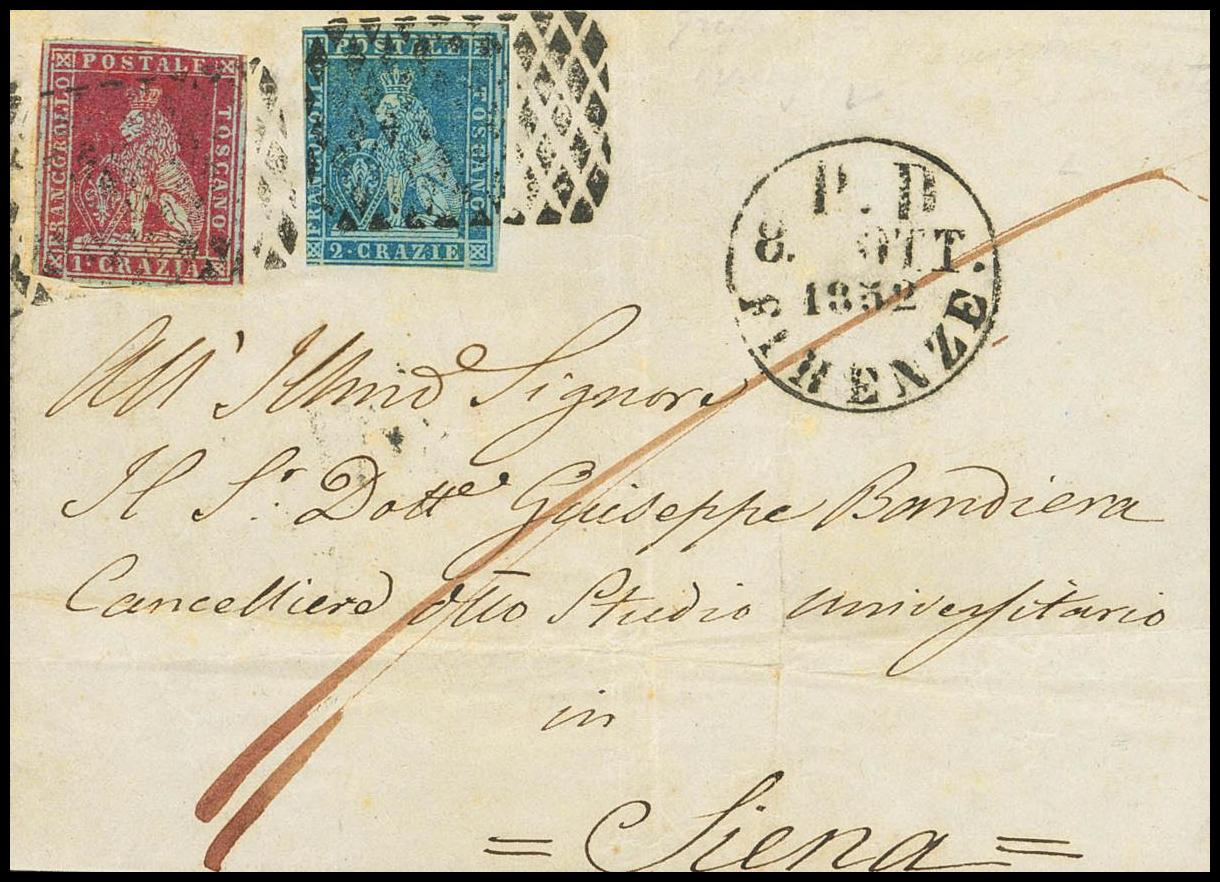 FRANCOBOLLO POSTALE TOSCANO
1. CRAZIA
FRANCOBOLLO POSTALE TOSCANO
2. CRAZIE
P. D
8. OTT.
1852
FIRENZE
All' Illmo Signore
Il Sr. Dotte Guiseppe Bandiera
Cancelliere Studio universitario
in
= Siena =